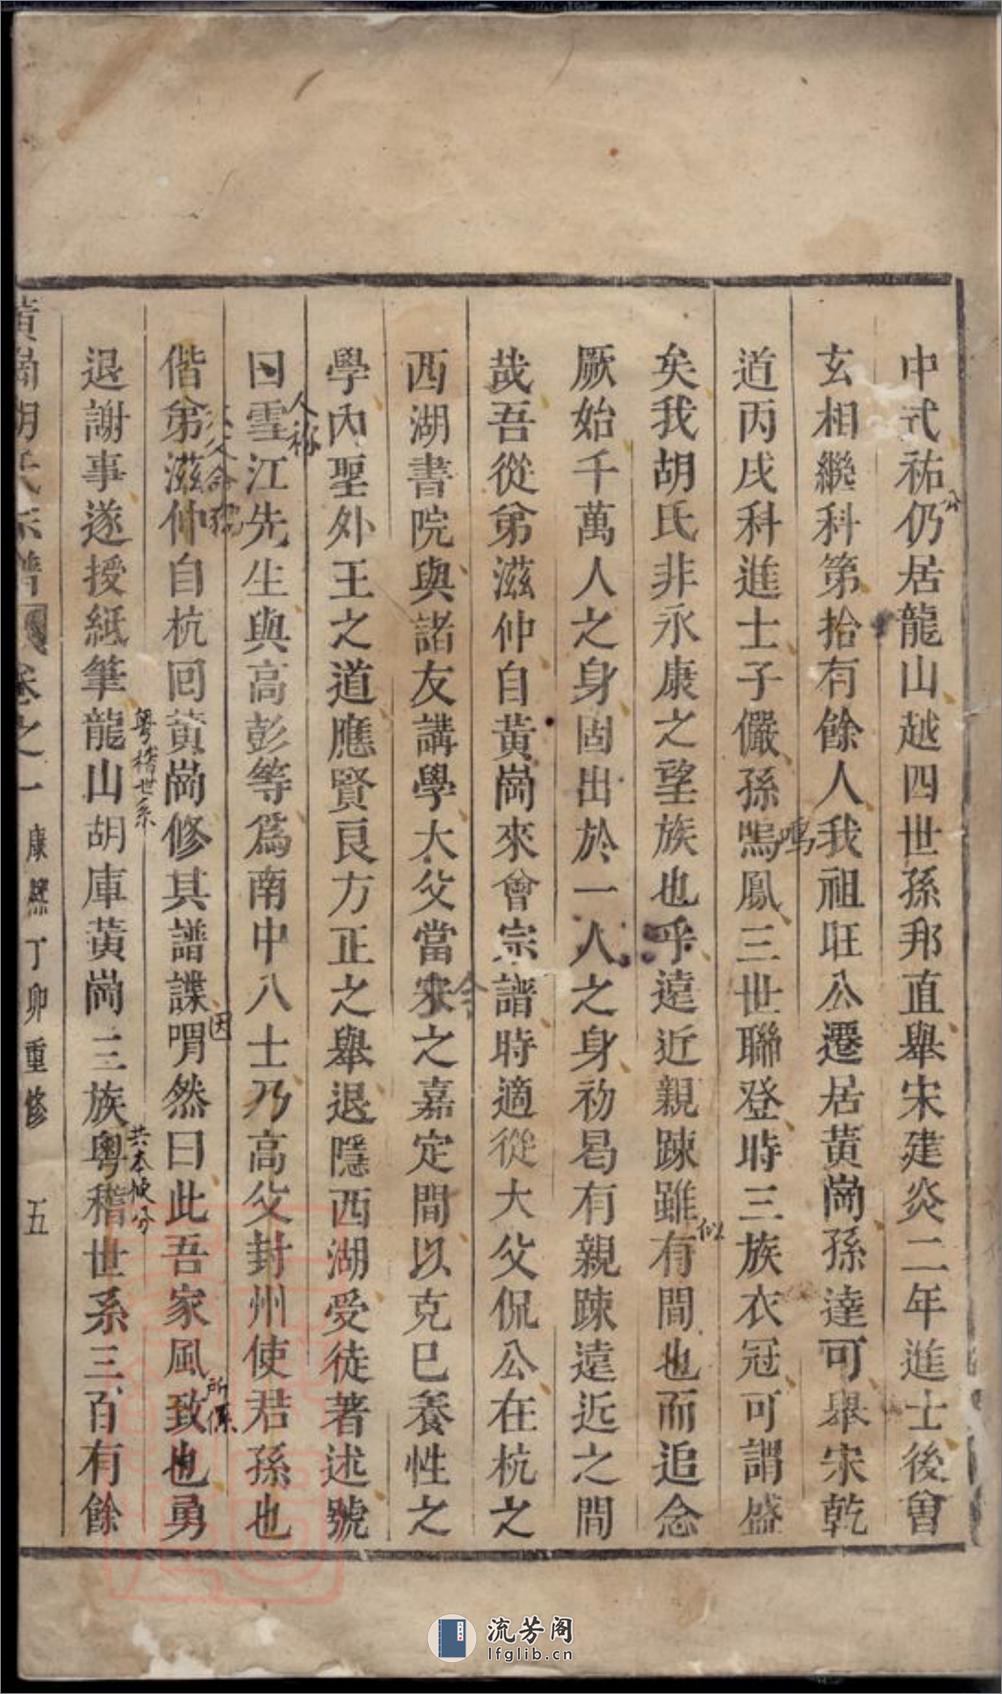 中式祐仍居龍山越四世孫邦直舉宋建炎二年進士後曾
公
玄相繼科第拾有餘人我祖旺公遷居黃崗孫達可舉宋乾
道丙戌科進士子儼孫鳴鳳三世聯登時三族衣冠可謂盛
鳴
矣我胡氏非永康之望族也乎遠近親踈雖有間也而追念
似
厥始千萬人之身固出於一人之身礽曷有親踈遠近之間
哉吾從弟滋仲自黃崗來會宗譜時適從大父侃公在杭之
西湖書院與諸友講學大父當宋之嘉定間以克已養性之
學內聖外王之道應賢良方正之舉退隱西湖受徒著述號
曰雪江先生與高彭等為南中八士乃高父封州使君孫也
人稱
偕弟滋仲自杭回黃崗修其譜諜喟然曰此吾家風致也勇
因
所係
退謝事遂授紙筆龍山胡庫黃崗三族粤稽世系三百有餘
粤稽世系
共本使分
黃崗胡氏宗譜 卷之一 康熙丁卯重修 五
流芳阁
lfglib.cn